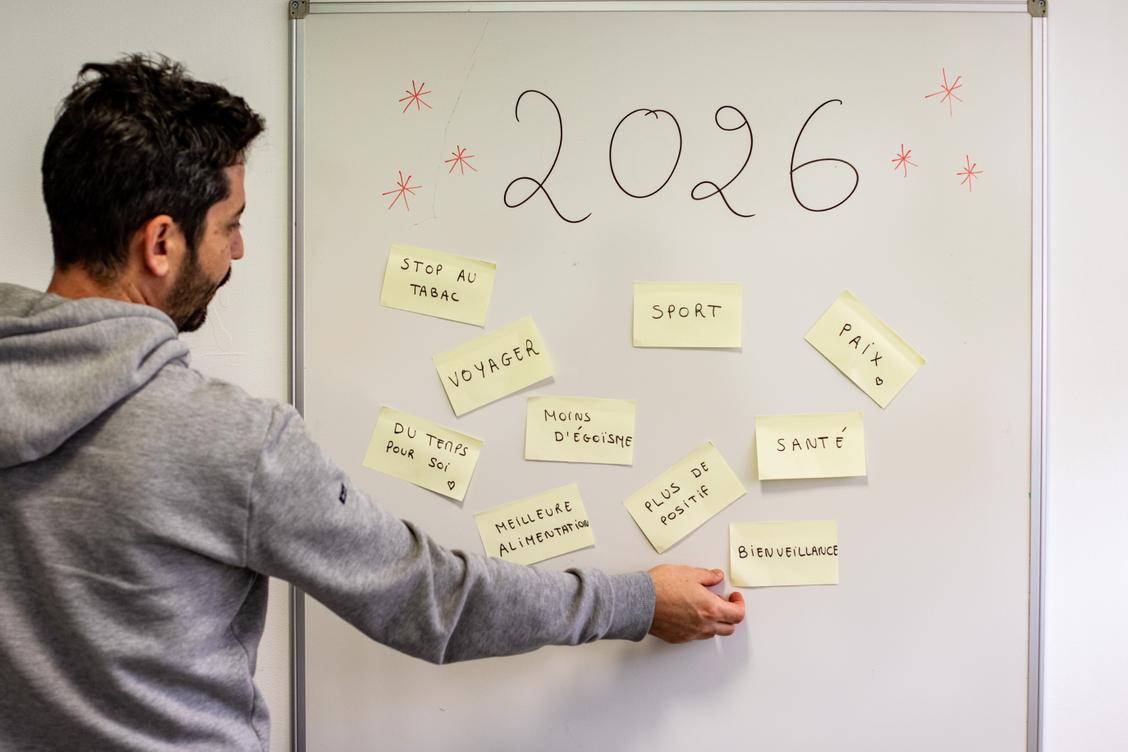 2026
STOP AU
TABAC
SPORT
PAIX
VOYAGER
MOINS
D'ÉGOÏSME
DU TEMPS
POUR SOI
SANTÉ
PLUS DE
POSITIF
MEILLEURE
ALIMENTATION
BIENVEILLANCE